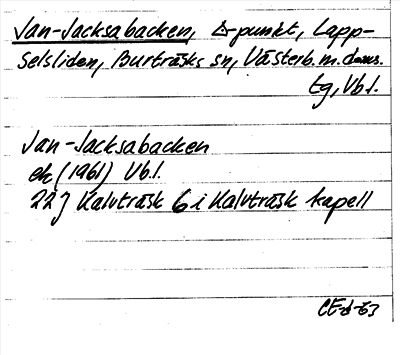 Jan-Jacksabacken, Δ-punkt, Lapp-
selsliden, Burträsks sn, Västerb. m. doms.
tg, Vb.l.
Jan-Jacksabacken
ek (1961) Vb.l.
22J Kalvträsk 6 i Kalvträsk kapell
CE-d-63